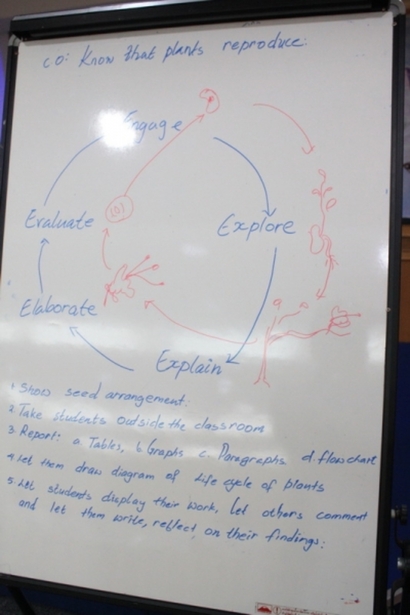 CO: Know that plants reproduce:
Engage
Explore
Explain
Elaborate
Evaluate
1. Show seed arrangement:
2. Take students outside the classroom
3. Report: a. Tables, b. Graphs c. Paragraphs d. flow chart
4. Let them draw diagram of life cycle of plants
5. Let students display their work, Let others comment
and let them write, reflect on their findings: